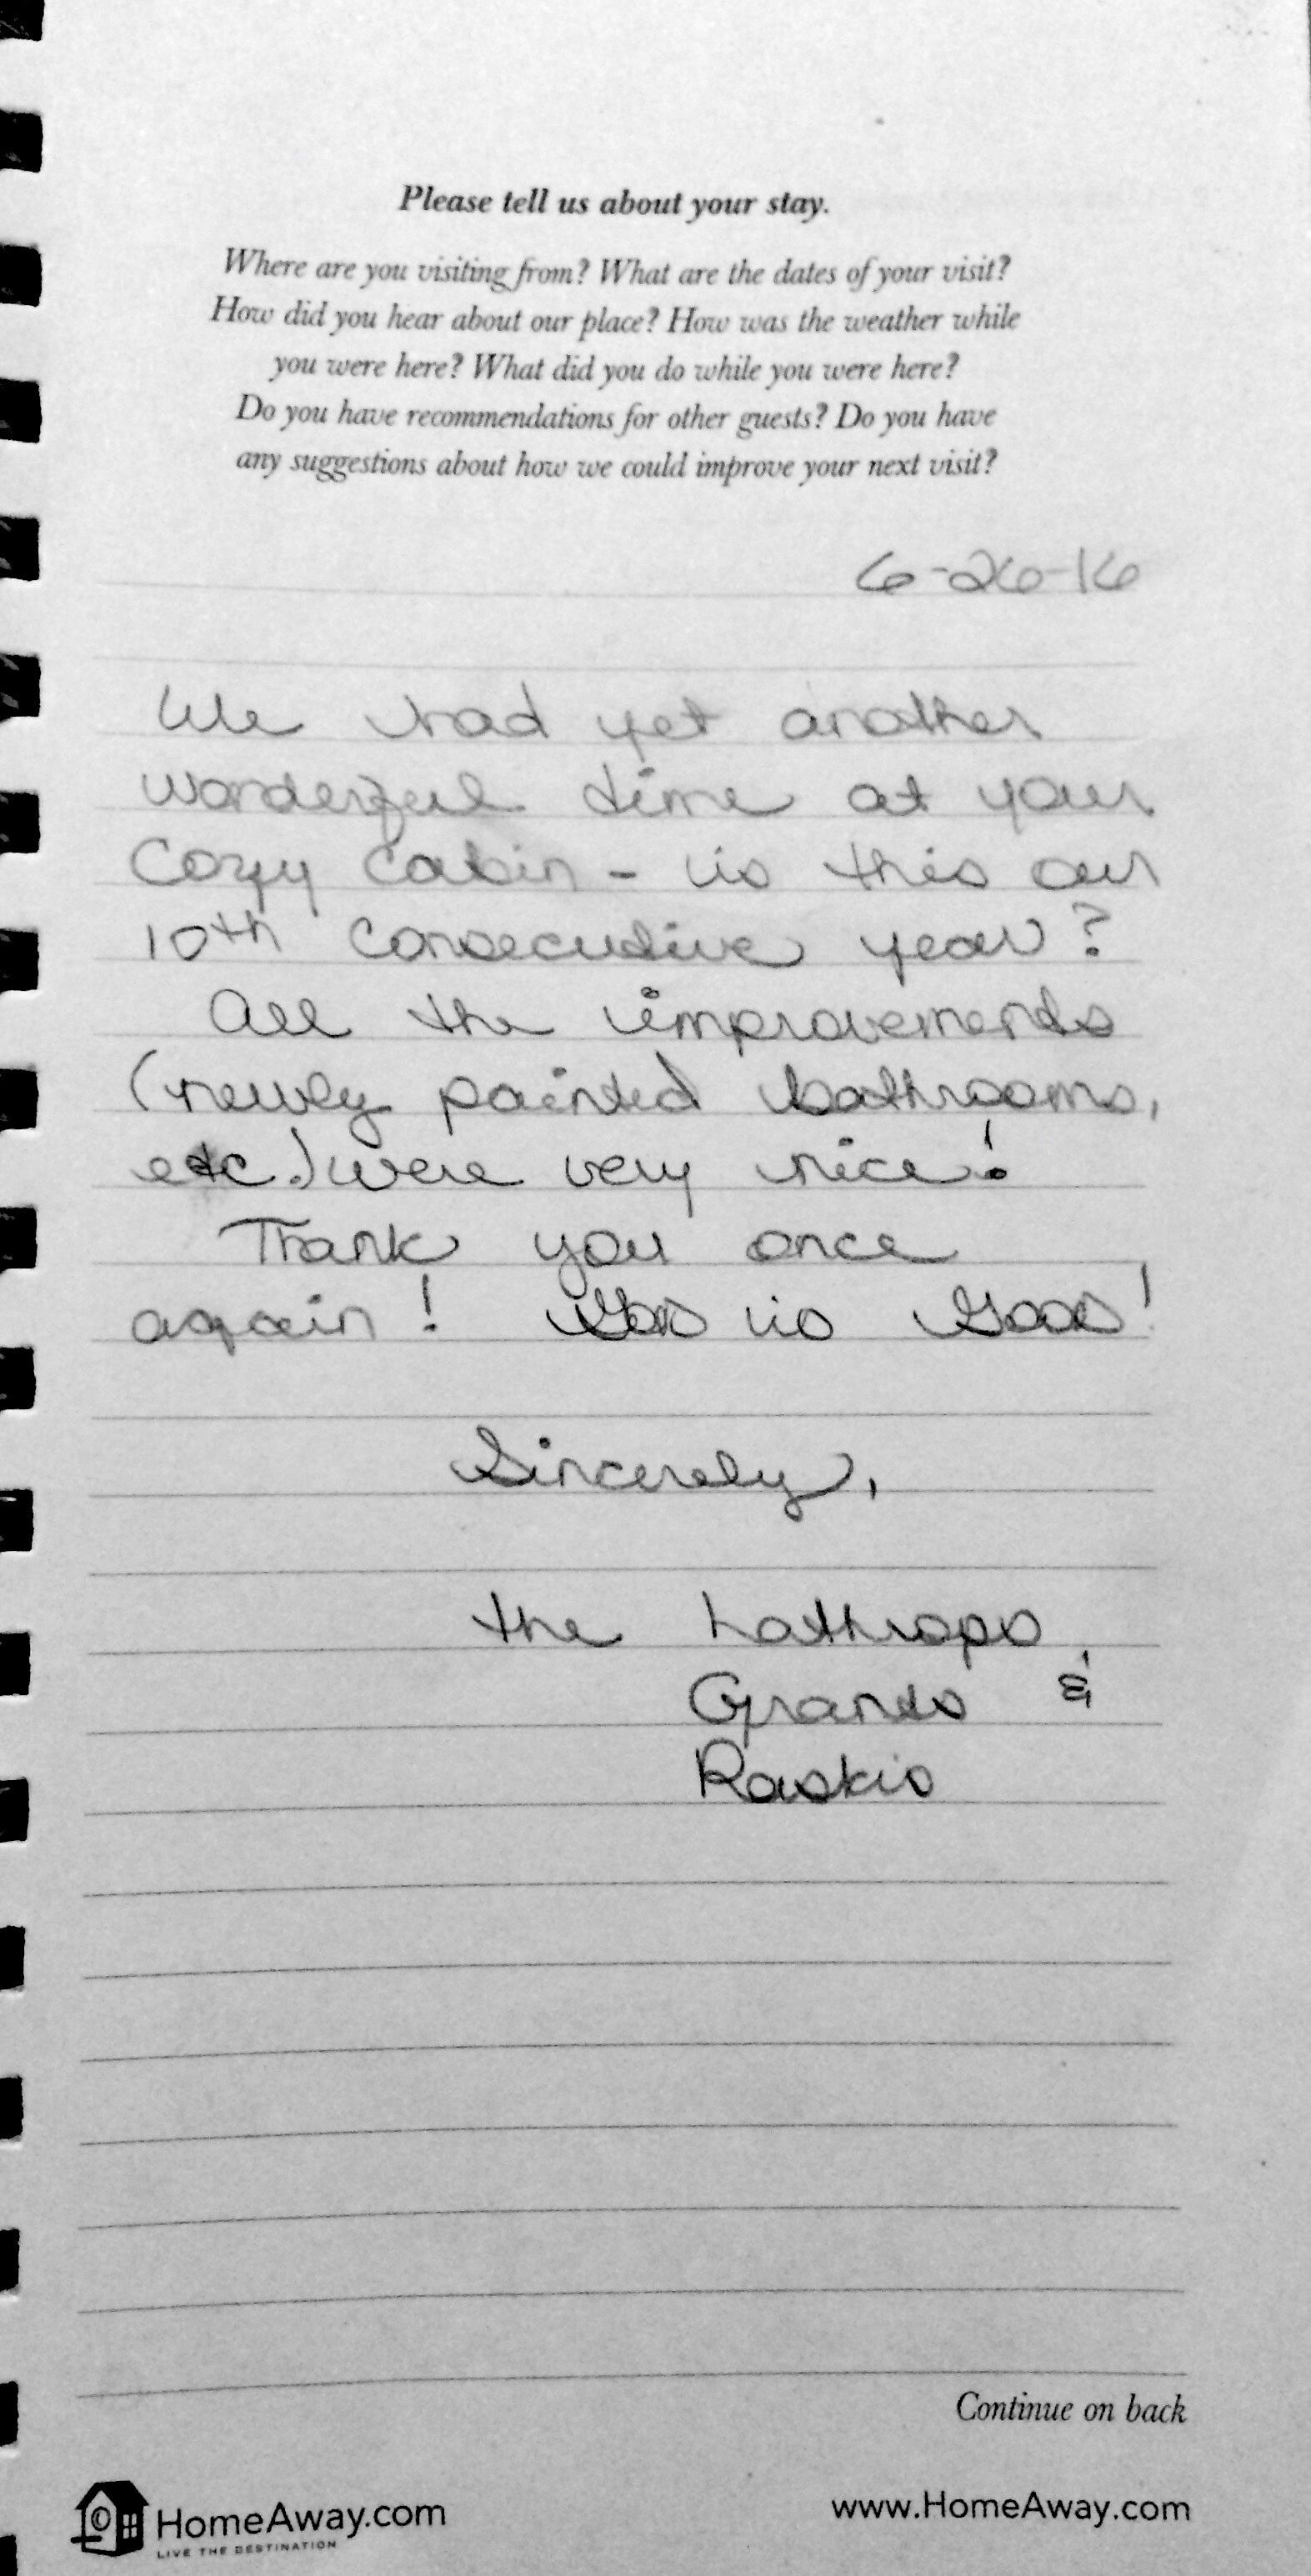 Please tell us about your stay.
Where are you visiting from? What are the dates of your visit?
How did you hear about our place? How was the weather while
you were here? What did you do while you were here?
Do you have recommendations for other guests? Do you have
any suggestions about how we could improve your next visit?
6-26-16
We had yet another
wonderful time at your
Cozy Cabin - is this our
10th consecutive year?
All the improvements
(newly painted bathrooms,
etc.) were very nice!
Thank you once
again! God is Good!
Sincerely,
the Lathrops,
Grants &
Raskis
Continue on back
HomeAway.com
LIVE THE DESTINATION
www.HomeAway.com